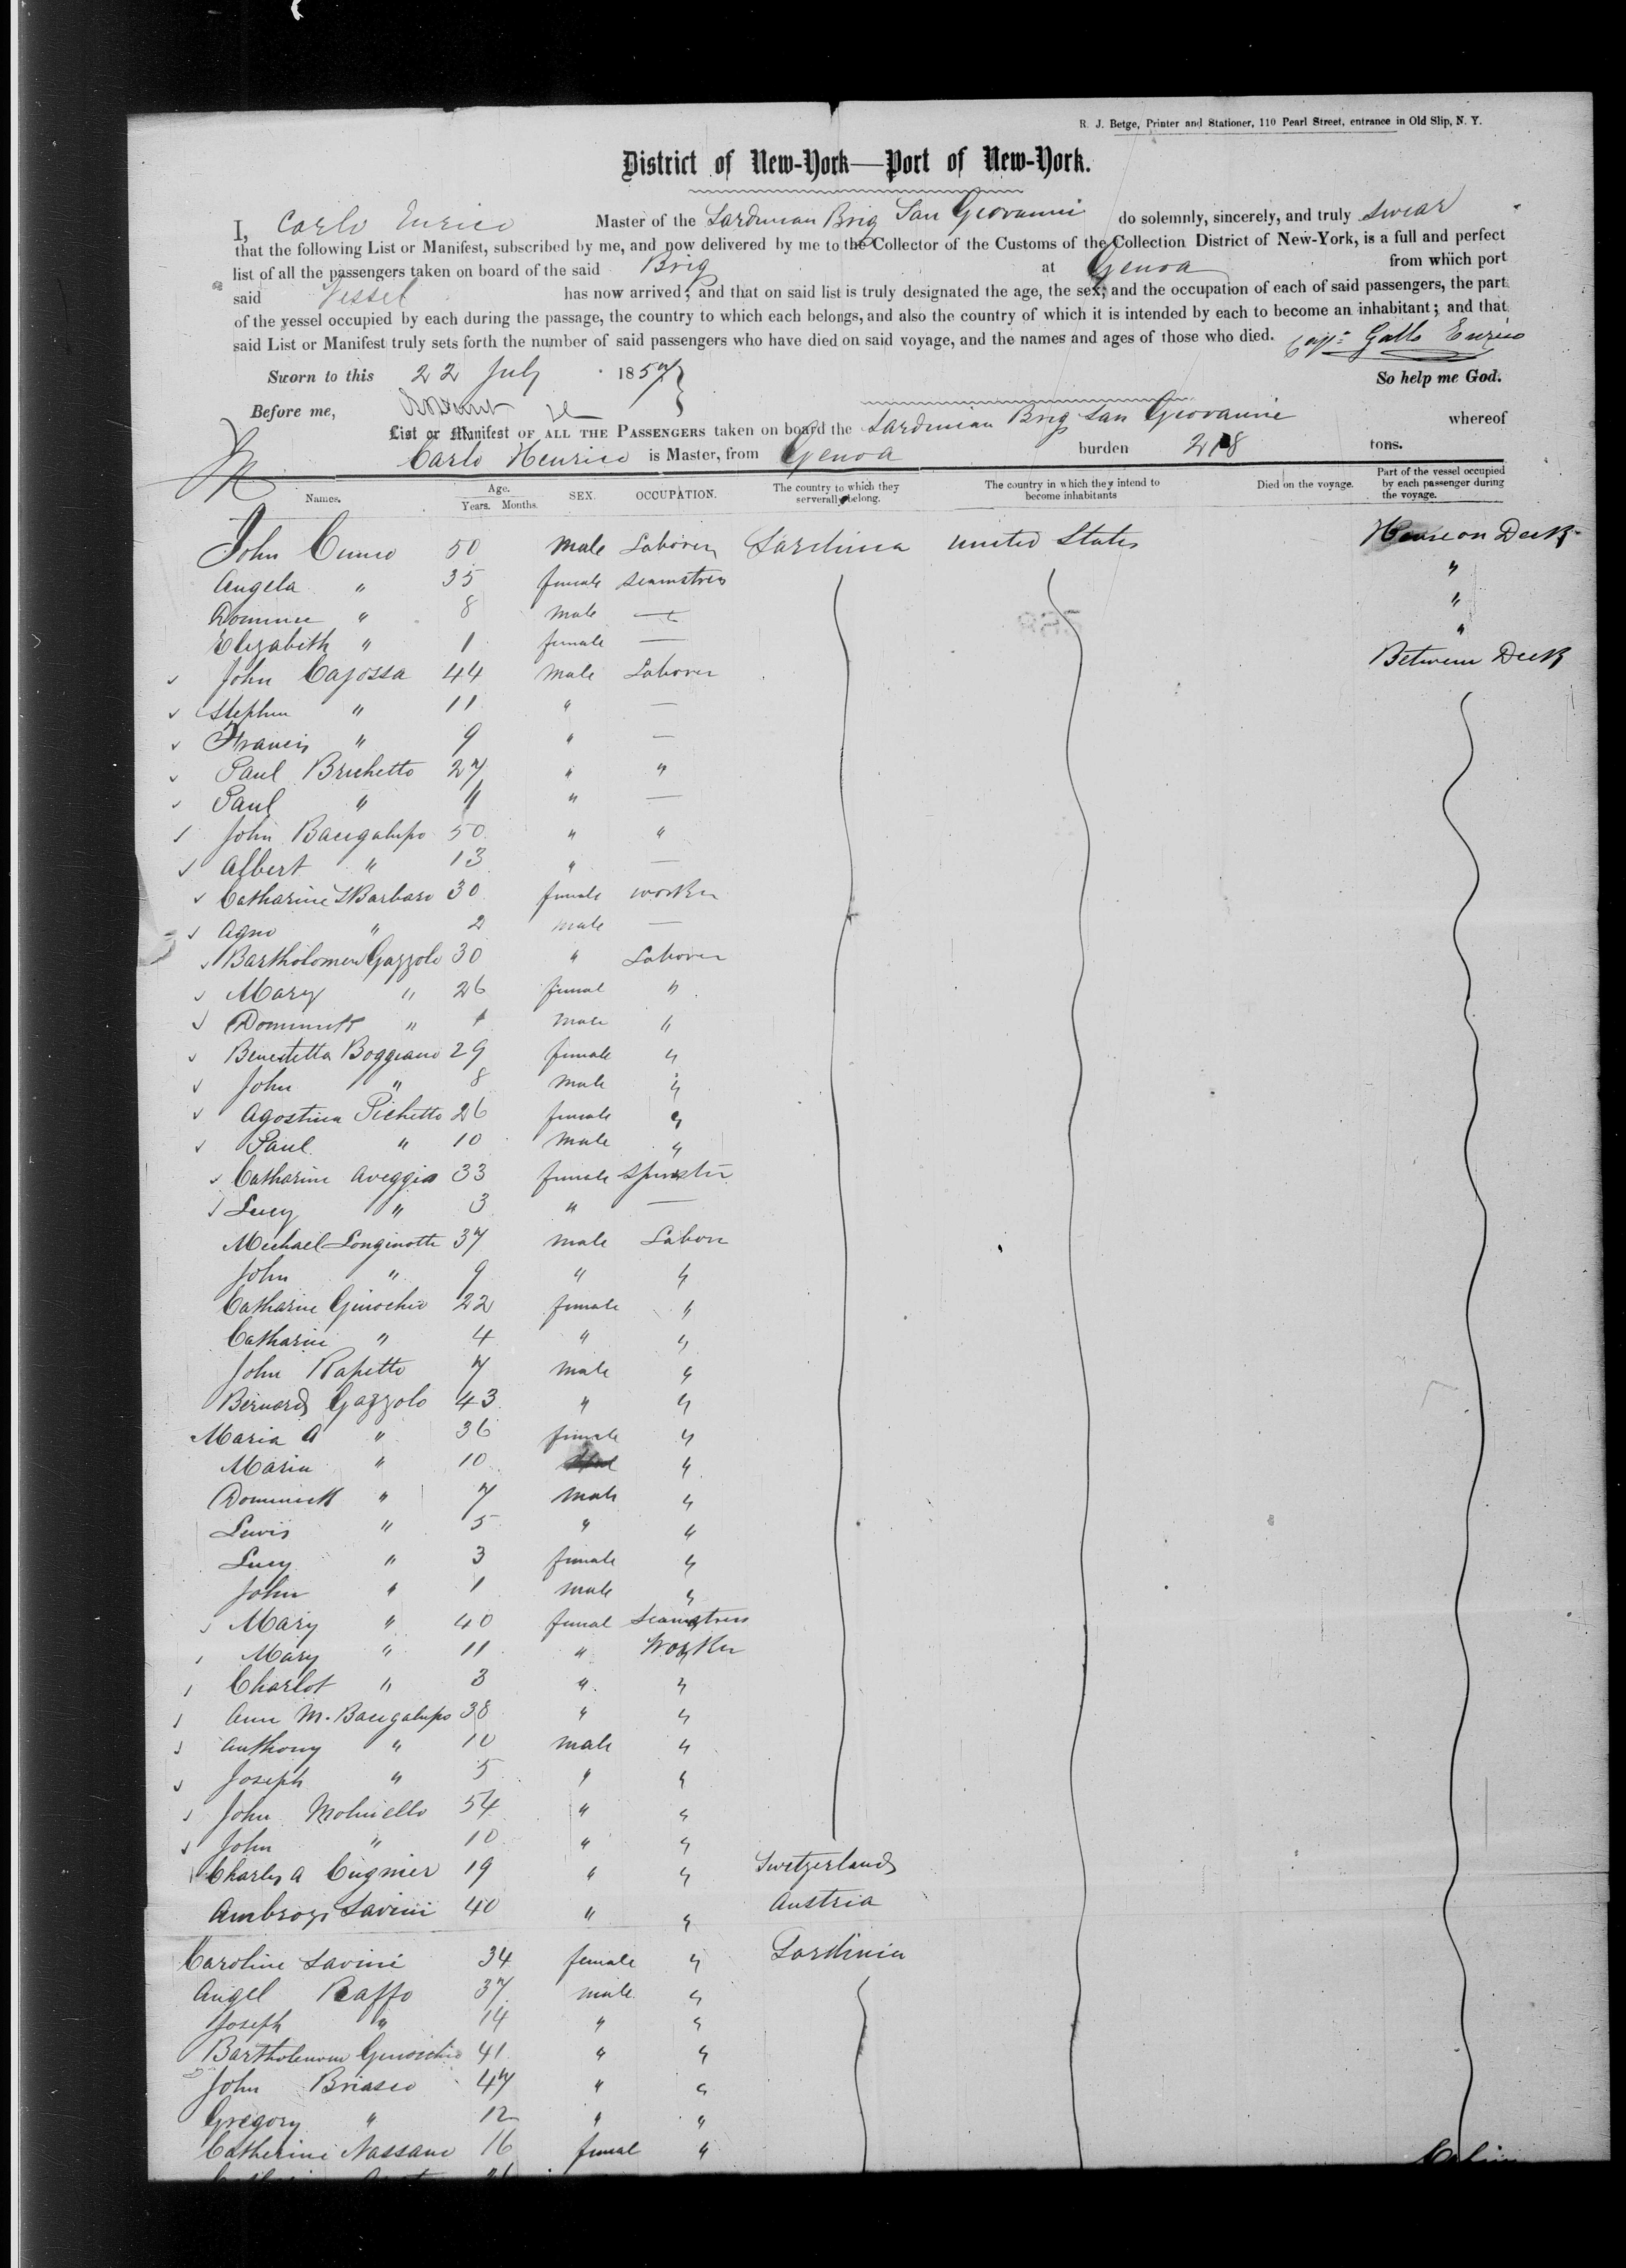 R. J. Betge, Printer and Stationer, 110 Pearl Street, entrance in Old Slip, N. Y.
District of New-York—Port of New-York.
I, Carlo Enrico Master of the Sardinian Brig San Geovanni do solemnly, sincerely, and truly swear
that the following List or Manifest, subscribed by me, and now delivered by me to the Collector of the Customs of the Collection District of New-York, is a full and perfect
list of all the passengers taken on board of the said Brig at Genoa from which port
said Vessel has now arrived; and that on said list is truly designated the age, the sex, and the occupation of each of said passengers, the part
of the vessel occupied by each during the passage, the country to which each belongs, and also the country of which it is intended by each to become an inhabitant; and that
said List or Manifest truly sets forth the number of said passengers who have died on said voyage, and the names and ages of those who died. Capn Gallo Enrico
Sworn to this 22 July 1857 So help me God.
Before me,
List or Manifest OF ALL THE PASSENGERS taken on board the Sardinian Brig San Geovannie whereof
Carlo Henrico is Master, from Genoa burden 218 tons.
Names. Age. Years. Months. SEX. OCCUPATION. The country to which they serverally belong. The country in which they intend to become inhabitants Died on the voyage. Part of the vessel occupied by each passenger during the voyage.
John Cuneo 50 Male Laborer Sardinia United States House on Deck
Angela " 35 female seamstress "
Dominic " 8 male — "
Elizabeth " 1 female — "
John Cajossa 44 Male Laborer Between Deck
Stephen " 11 " —
Francis " 9 " —
Paul Brichetto 27 " "
Paul " 11 " —
John Bacigalupo 50 " "
Albert " 13 " —
Catharine SBarbaro 30 female worker
Agno " 2 male —
Bartholomew Gazzolo 30 " Laborer
Mary " 26 femal "
Dominick " 1 male "
Benedetta Boggiano 29 female "
John " 8 male "
Agostina Pichetto 26 female "
Paul " 10 male "
Catharine Aveggio 33 female Spinster
Lucy " 3 " —
Michael Longinotti 37 male Labore
John " 9 " "
Catharine Ginochio 22 female "
Catharine " 4 " "
John Rapetto 7 male "
Bernard Gazzolo 43 " "
Maria A " 36 female "
Maria " 10 "
Dominick " 7 male "
Lewis " 5 " "
Lucy " 3 female "
John " 1 male "
Mary " 40 femal Seamstress
Mary " 11 " Worker
Charlot " 3 " "
Ann M. Bacigalupo 38 " "
Anthony " 10 male "
Joseph " 5 " "
John Molinello 54 " "
John " 10 " "
Charles A Cugnier 19 " " Switzerland
Ambrozi Savini 40 " " Austria
Caroline Savini 34 female " Sardinia
Angel Raffo 37 male "
Joseph " 14 " "
Bartholemew Ginocchio 41 " "
John Briasco 47 " "
Gregory " 12 " "
Catherine Nassano 16 femal "